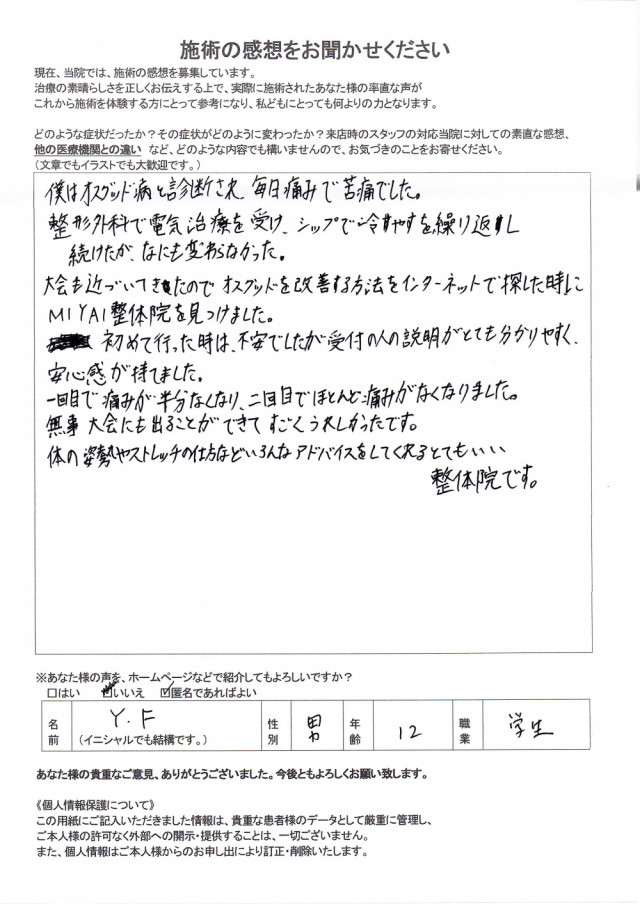 施術の感想をお聞かせください
現在、当院では、施術の感想を募集しています。
治療の素晴らしさを正しくお伝えする上で、実際に施術されたあなた様の率直な声が
これから施術を体験する方にとって参考になり、私どもにとっても何よりの力となります。
どのような症状だったか？その症状がどのように変わったか？来店時のスタッフの対応当院に対しての素直な感想、
他の医療機関との違い など、どのような内容でも構いませんので、お気づきのことをお寄せください。
（文章でもイラストでも大歓迎です。）
僕はオスグッド病と診断され、毎日痛みで苦痛でした。
整形外科で電気治療を受け、シップで冷やすを繰り返し
続けたが、なにも変わらなかった。
大会も近づいてきたのでオスグッドを改善する方法をインターネットで探した時に
MIYAI整体院を見つけました。
初めて行った時は、不安でしたが受付の人の説明がとても分かりやすく、
安心感が持てました。
一回目で痛みが半分なくなり、二回目でほとんど痛みがなくなりました。
無事大会にも出ることができてすごくうれしかったです。
体の姿勢やストレッチの仕方などいろんなアドバイスをしてくれるとてもいい
整体院です。
※あなた様の声を、ホームページなどで紹介してもよろしいですか？
□はい □いいえ ☑匿名であればよい
名前 Y.F （イニシャルでも結構です。） 性別 男 年齢 12 職業 学生
あなた様の貴重なご意見、ありがとうございました。今後ともよろしくお願い致します。
《個人情報保護について》
この用紙にご記入いただきました情報は、貴重な患者様のデータとして厳重に管理し、
ご本人様の許可なく外部への開示・提供することは、一切ございません。
また、個人情報はご本人様からのお申し出により訂正・削除いたします。